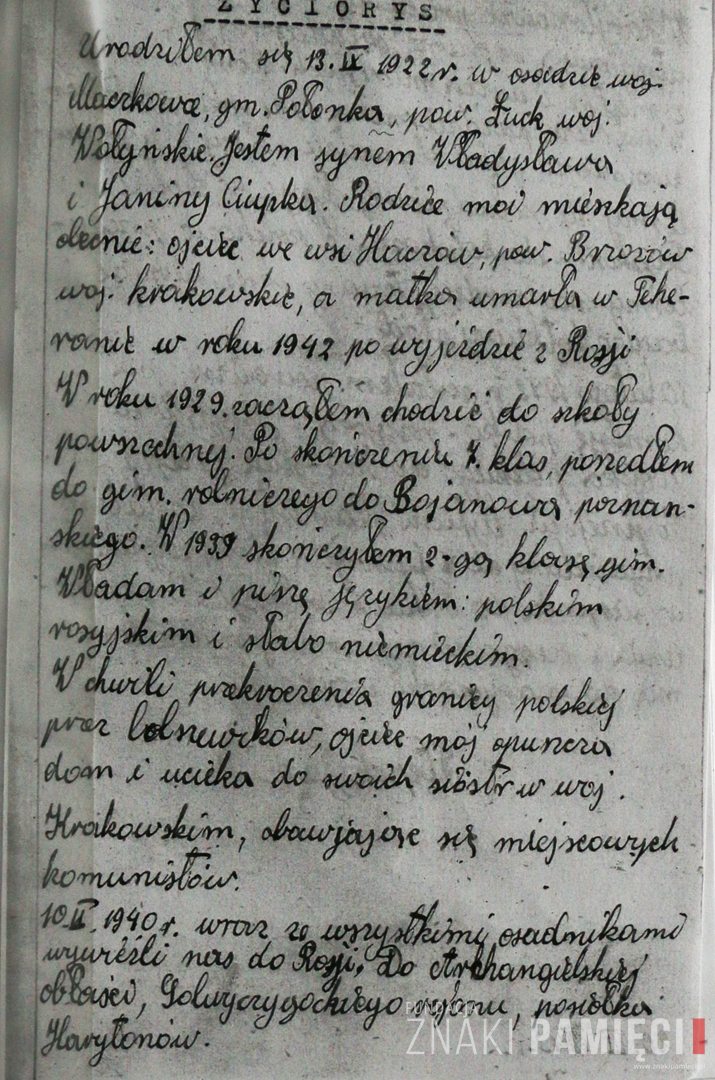 ŻYCIORYS
Urodziłem się 13. IX 1922 r. w osadzie woj.
Maczkowce, gm. Połonka, pow. Łuck, woj.
Wołyńskie. Jestem synem Władysława
i Janiny Ciupka. Rodzice moi mieszkają
obecnie: ojciec we wsi Haczów, pow. Brzozów
woj. krakowskie, a matka umarła w Tehe-
ranie w roku 1942 po wyjeździe z Rosji
W roku 1929. zacząłem chodzić do szkoły
powszechnej. Po skończeniu 7. klas, poszedłem
do gim. rolniczego do Bojanowa poznań-
skiego. W 1939 skończyłem 2-gą klasę gim.
Władam i piszę językiem: polskim
rosyjskim i słabo niemieckim.
W chwili przekroczenia granicy polskiej
przez bolszewików, ojciec mój opuszcza
dom i ucieka do swoich sióstr w woj.
Krakowskim, obawjając się miejscowych
komunistów.
10 II 1940 r. wraz ze wszystkimi osadnikami
wywieźli nas do Rosji. Do Archangielskiej
obłaści, Solwyczygockiego rejonu, posiołka
Harytonów.
FUNDACJA
ZNAKI PAMIĘCI
www.znakipamieci.pl